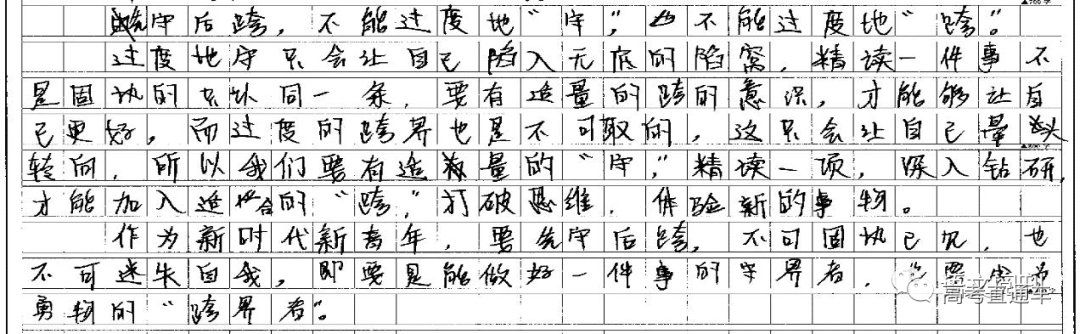 先守后跨，不能过度地“守”，也不能过度地“跨”。
过度地守只会让自己陷入无底的陷窝，精读一件事不
是固执的只 同一条，要有适量的跨的意识，才能够让自
己更好，而过度的跨界也是不可取的，这只会让自己晕头
转向，所以我们要有适量的“守”，精读一项，深入钻研，
才能加入适合的“跨”，打破思维，体验新的事物。
作为新时代新青年，要先守后跨，不可固执己见，也
不可迷失自我，即要是能做好一件事的守界者，要
勇 的“跨界者”。
高考直通车